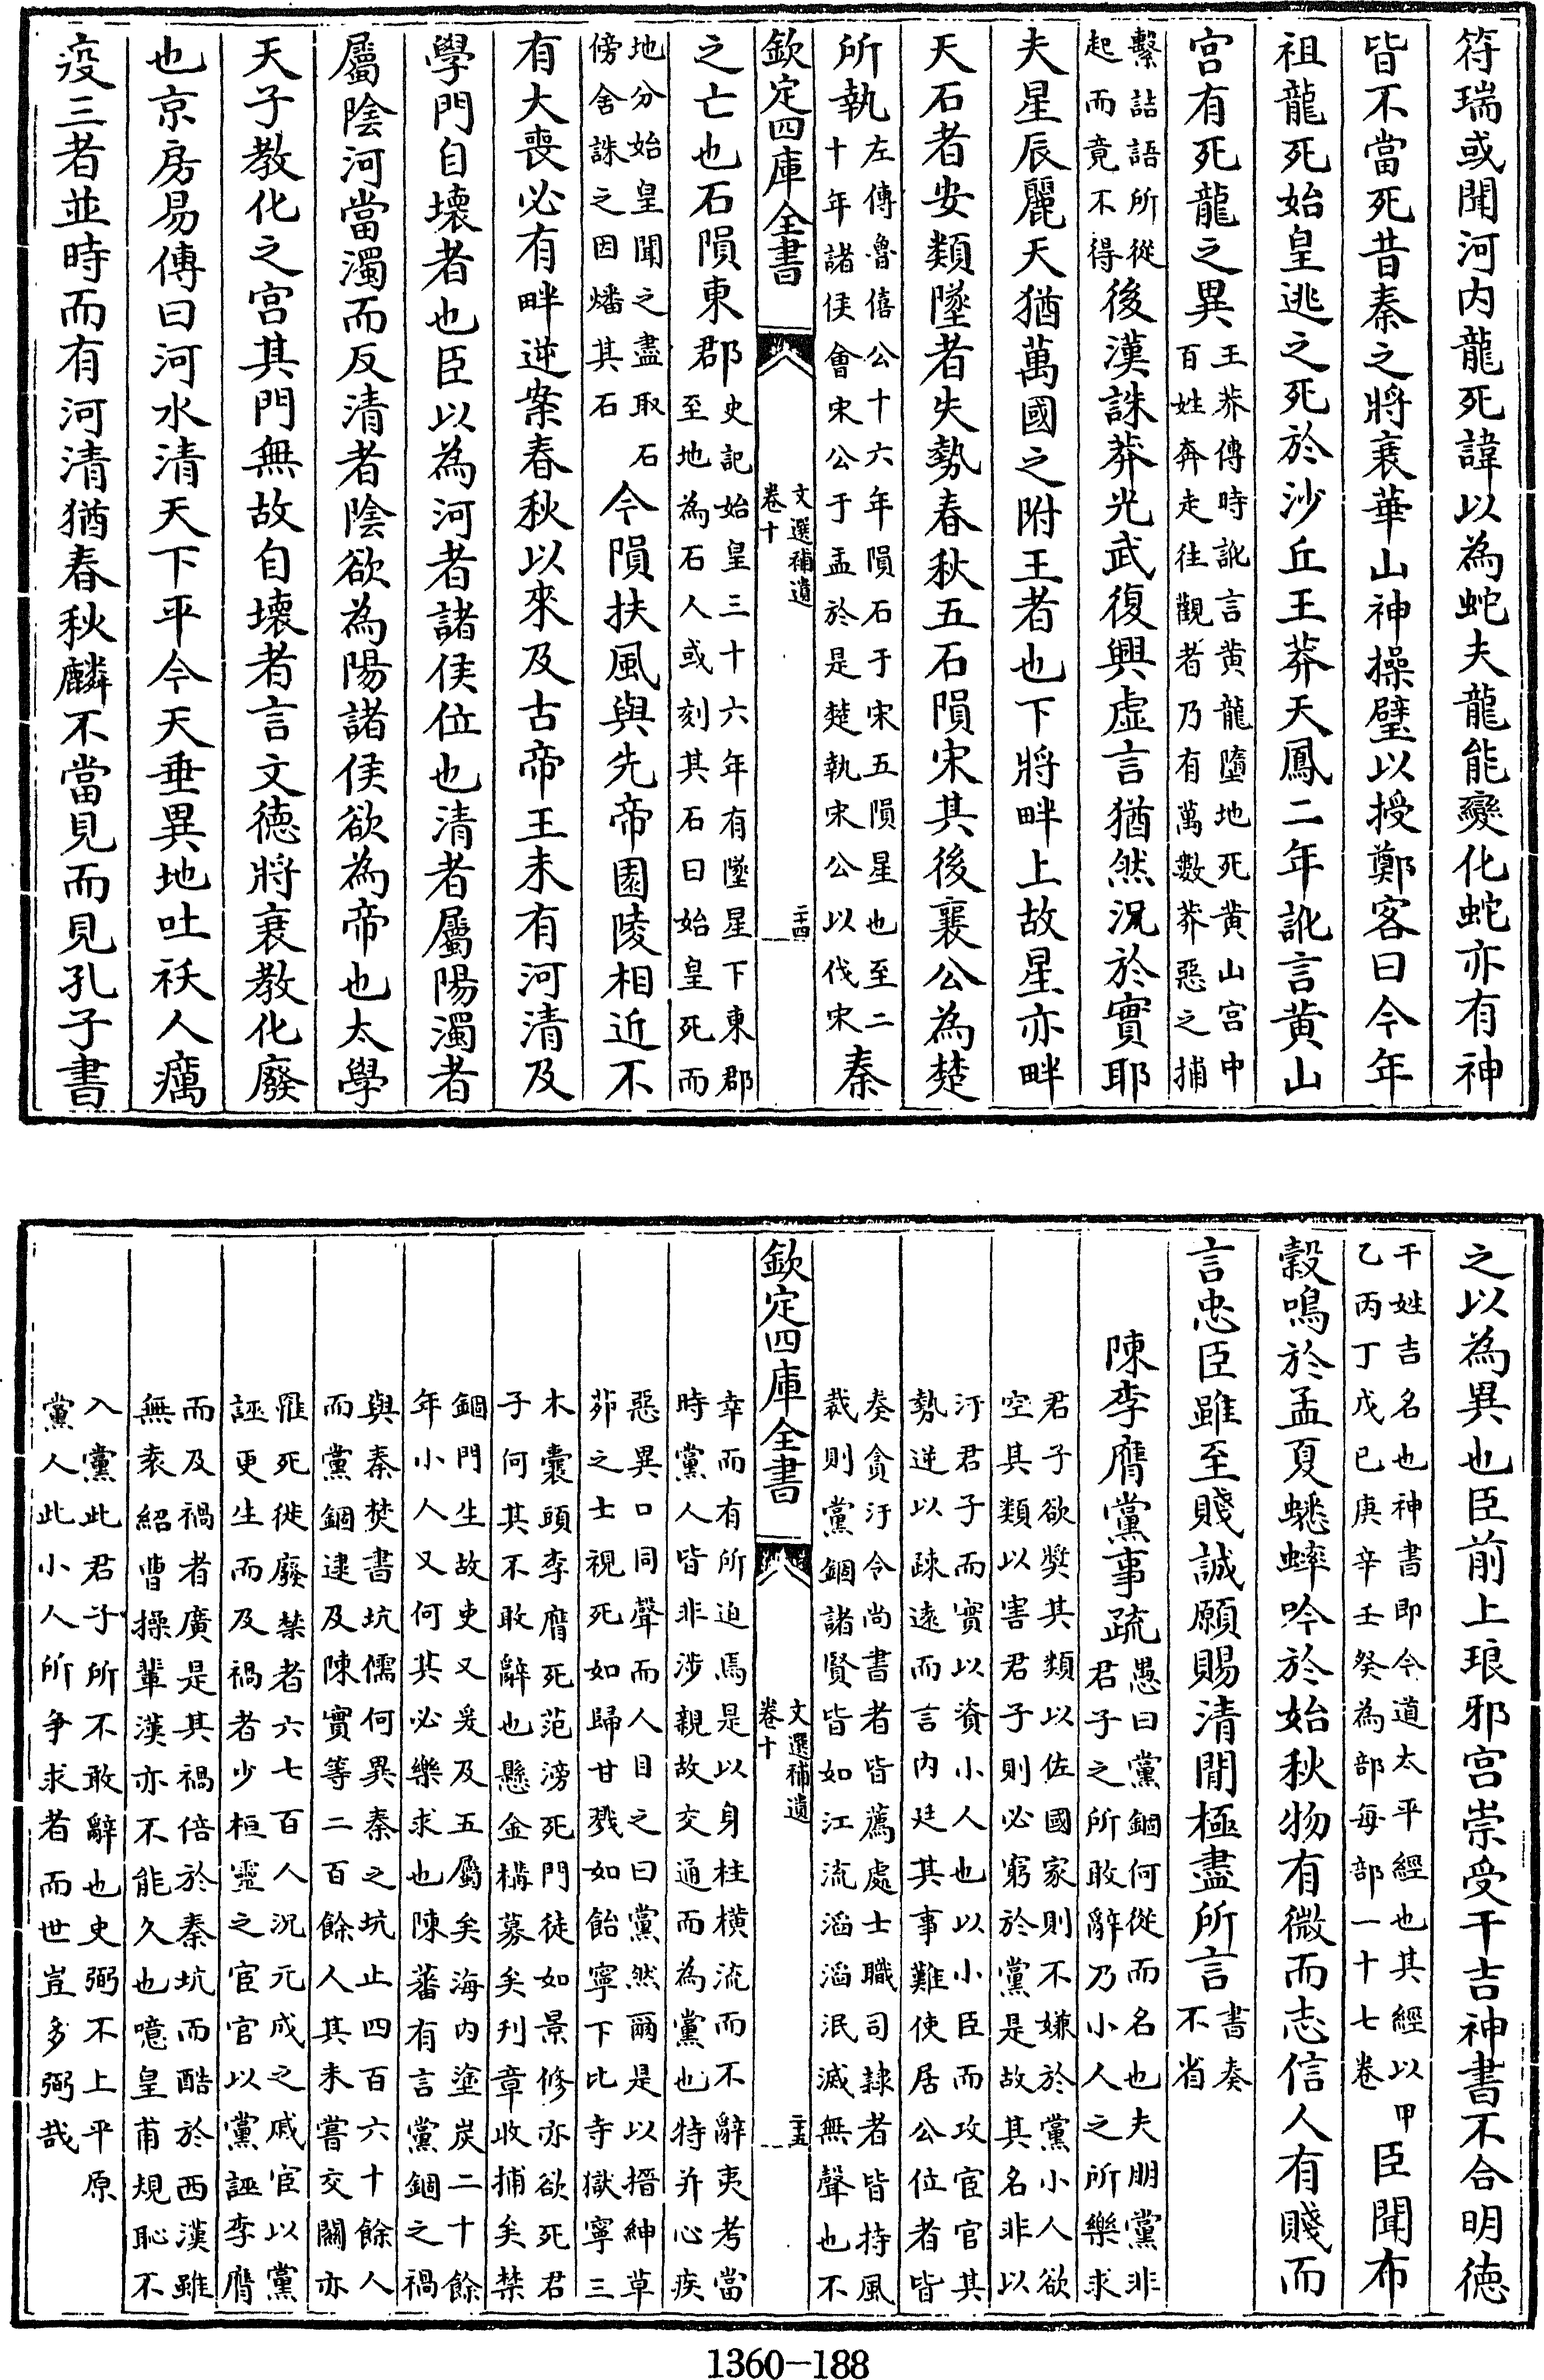 符瑞或聞河内龍死諱以為蛇夫龍能變化蛇亦有神
皆不當死昔秦之將衰華山神操璧以授鄭客曰今年
祖龍死始皇逃之死於沙丘王莽天鳳二年訛言黄山
宫有死龍之異王莽傳時訛言黄龍墮地死黄山宫中
百姓奔走往觀者乃有萬數莽惡之捕
繫詰語所從
起而竟不得後漢誅莽光武復興虚言猶然況於實耶
夫星辰麗天猶萬國之附王者也下將畔上故星亦畔
天石者安類墜者失勢春秋五石隕宋其後襄公為楚
所執左傳魯僖公十六年隕石于宋五隕星也至二
十年諸侯會宋公于盂於是楚執宋公以伐宋秦
欽定四庫全書
文選補遺
卷十
二十四
之亡也石隕東郡史記始皇三十六年有墜星下東郡
至地為石人或刻其石曰始皇死而
地分始皇聞之盡取石
傍舍誅之因燔其石今隕扶風與先帝園陵相近不
有大喪必有畔逆案春秋以來及古帝王未有河清及
學門自壊者也臣以為河者諸侯位也清者屬陽濁者
屬陰河當濁而反清者陰欲為陽諸侯欲為帝也太學
天子教化之宫其門無故自壊者言文德將衰教化廢
也京房易傳曰河水清天下平今天垂異地吐袄人癘
疫三者並時而有河清猶春秋麟不當見而見孔子書
之以為異也臣前上琅邪宫崇受干吉神書不合明德
干姓吉名也神書即今道太平經也其經以甲
乙丙丁戊己庚辛壬癸為部每部一十七卷臣聞布
穀鳴於孟夏蟋蟀吟於始秋物有微而志信人有賤而
言忠臣雖至賤誠願賜清閒極盡所言書奏
不省
陳李膺黨事疏愚曰黨錮何從而名也夫朋黨非
君子之所敢辭乃小人之所樂求
君子欲奬其類以佐國家則不嫌於黨小人欲
空其類以害君子則必窮於黨是故其名非以
汙君子而實以資小人也以小臣而攻宦官其
勢逆以疎逺而言内廷其事難使居公位者皆
奏貪汙令尚書者皆薦處士職司隷者皆持風
裁則黨錮諸賢皆如江流滔滔泯滅無聲也不
欽定四庫全書
文選補遺
卷十
二十五
幸而有所迫焉是以身柱横流而不辭夷考當
時黨人皆非涉親故交通而為黨也特并心疾
惡異口同聲而人目之曰黨然爾是以搢紳草
茆之士視死如歸甘戮如飴寧下比寺獄寧三
木囊頭李膺死范滂死門徒如景修亦欲死君
子何其不敢辭也懸金構募矣刋章收捕矣禁
錮門生故吏又爰及五屬矣海内塗炭二十餘
年小人又何其必樂求也陳蕃有言黨錮之禍
與秦焚書坑儒何異秦之坑止四百六十餘人
而黨錮逮及陳實等二百餘人其未嘗交闗亦
罹死徙廢禁者六七百人況元成之戚宦以黨
誣更生而及禍者少桓靈之宦官以黨誣李膺
而及禍者廣是其禍倍於秦坑而酷於西漢雖
無袁紹曹操輩漢亦不能久也噫皇甫規恥不
入黨此君子所不敢辭也史弼不上平原
黨人此小人所争求者而世豈多弼哉
1360—188